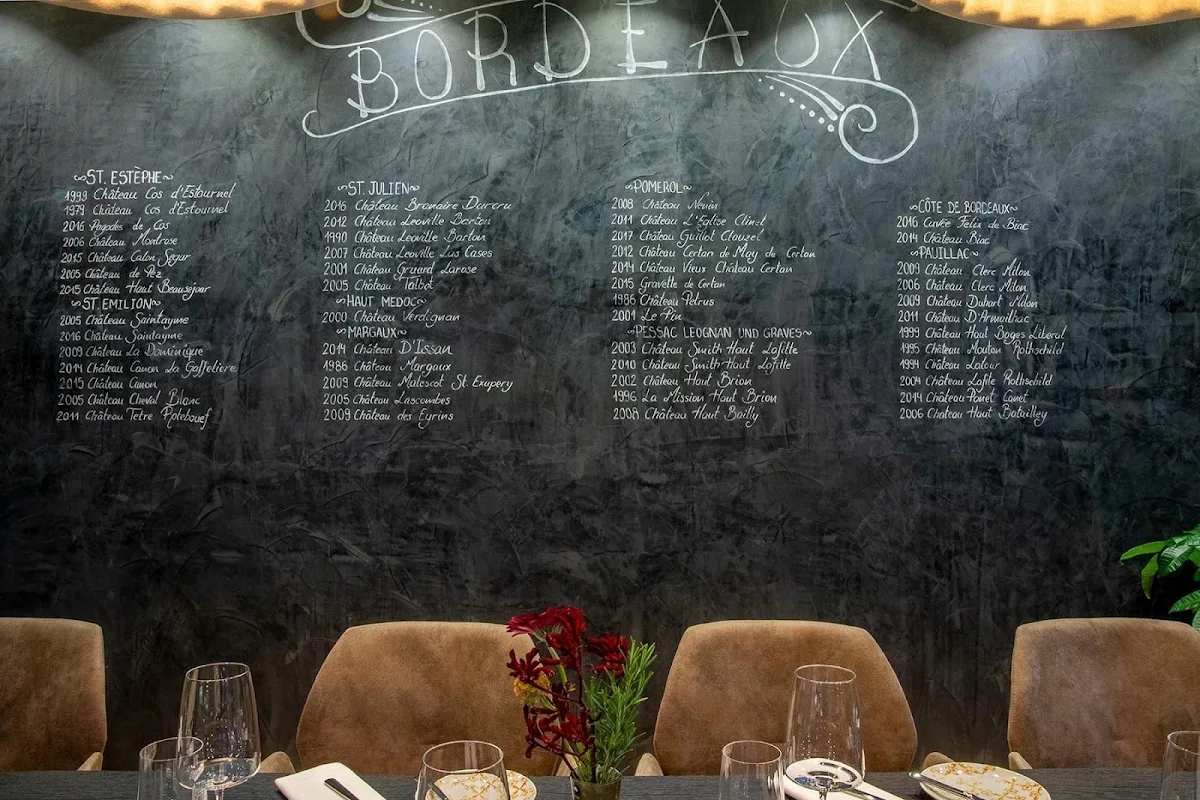 BORDEAUX
~ST. ESTÈPHE~
1998 Château Cos d'Estournel
1979 Château Cos d'Estournel
2016 Pagodes de Cos
2006 Château Montrose
2015 Château Calon Segur
2005 Château de Pez
2015 Château Haut Beausejour
~ST. EMILION~
2005 Château Saintayme
2016 Château Saintayme
2009 Château La Dominique
2014 Château Canon La Gaffeliere
2015 Château Canon
2005 Château Cheval Blanc
2011 Château Tetre Rotebouef
~ST. JULIEN~
2016 Château Branaire Ducru
2012 Château Leoville Barton
1990 Château Leoville Barton
2007 Château Leoville Las Cases
2001 Château Gruard Larose
2005 Château Talbot
~HAUT MEDOC~
2000 Château Verdignan
~MARGAUX~
2014 Château D'Issan
1986 Château Margaux
2009 Château Malescot St. Exupery
2005 Château Lascombes
2009 Château des Eyrins
~POMEROL~
2008 Château Nenin
2011 Château L'Eglise Clinet
2017 Château Guillot Clauzel
2012 Château Certan de May de Certan
2014 Château Vieux Château Certan
2015 Gravette de Certan
1986 Château Petrus
2001 Le Pin
~PESSAC LEOGNAN UND GRAVES~
2003 Château Smith Haut Lafitte
2010 Château Smith Haut Lafitte
2002 Château Haut Brion
1996 La Mission Haut Brion
2008 Château Haut Bailly
~CÔTE DE BORDEAUX~
2016 Cuvée Felix de Biac
2014 Château Biac
~PAUILLAC~
2009 Château Clerc Milon
2006 Château Clerc Milon
2009 Château Duhart Milon
2011 Château D'Armailhac
1999 Château Haut Bages Liberal
1995 Château Mouton Rothschild
1994 Château Latour
2004 Château Lafite Rothschild
2014 Château Pontet Canet
2006 Château Haut Batailley